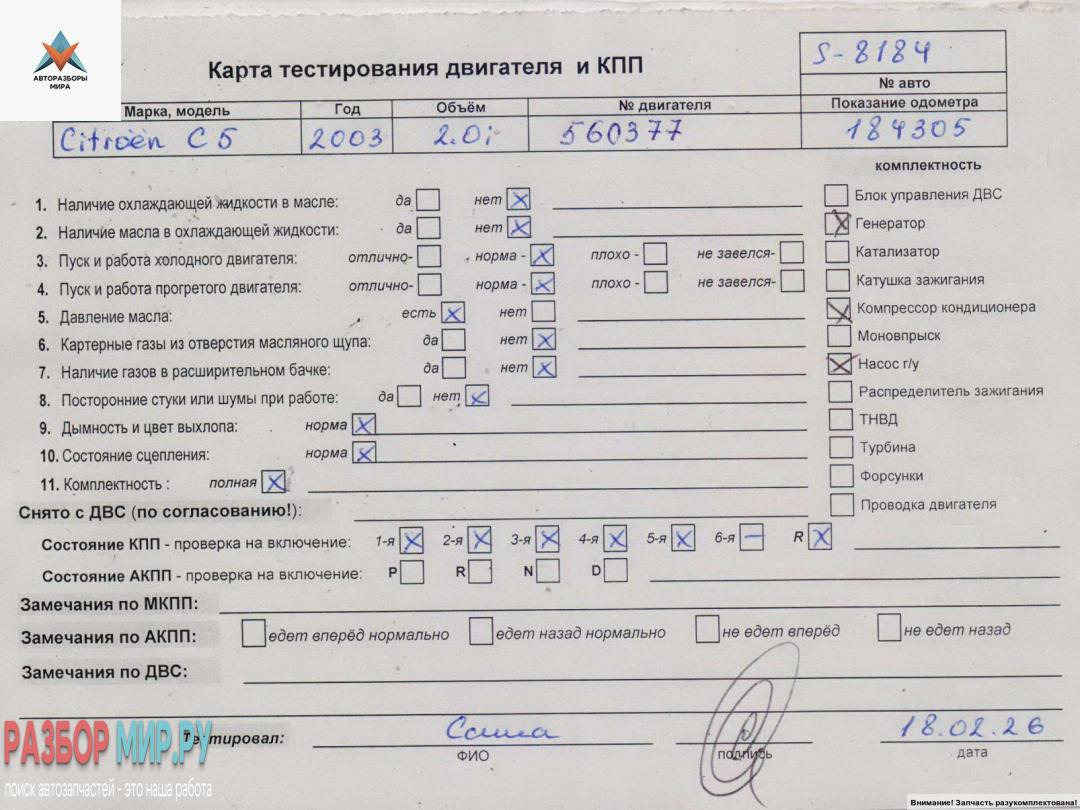 АВТОРАЗБОРЫ
МИРА
Карта тестирования двигателя и КПП
S-8184
№ авто
Марка, модель Год Объём № двигателя Показание одометра
Citroën C5 2003 2.0i 560377 184305
комплектность
1. Наличие охлаждающей жидкости в масле: да нет
Блок управления ДВС
2. Наличие масла в охлаждающей жидкости: да нет
Генератор
3. Пуск и работа холодного двигателя: отлично- норма - плохо - не завелся-
Катализатор
4. Пуск и работа прогретого двигателя: отлично- норма - плохо - не завелся-
Катушка зажигания
5. Давление масла: есть нет
Компрессор кондиционера
6. Картерные газы из отверстия масляного щупа: да нет
Моновпрыск
7. Наличие газов в расширительном бачке: да нет
Насос г/у
8. Посторонние стуки или шумы при работе: да нет
Распределитель зажигания
9. Дымность и цвет выхлопа: норма
ТНВД
10. Состояние сцепления: норма
Турбина
11. Комплектность : полная
Форсунки
Снято с ДВС (по согласованию!):
Проводка двигателя
Состояние КПП - проверка на включение: 1-я 2-я 3-я 4-я 5-я 6-я R
Состояние АКПП - проверка на включение: P R N D
Замечания по МКПП:
Замечания по АКПП: едет вперёд нормально едет назад нормально не едет вперёд не едет назад
Замечания по ДВС:
Тестировал: Саша 18.02.26
ФИО подпись дата
РАЗБОР МИР.РУ
поиск автозапчастей - это наша работа
Внимание! Запчасть разукомплектована!